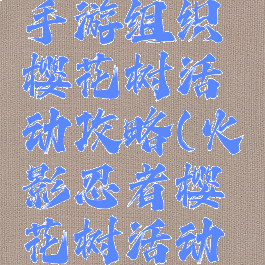 手游组织
樱花树活
动攻略(火
影忍者樱
花树活动